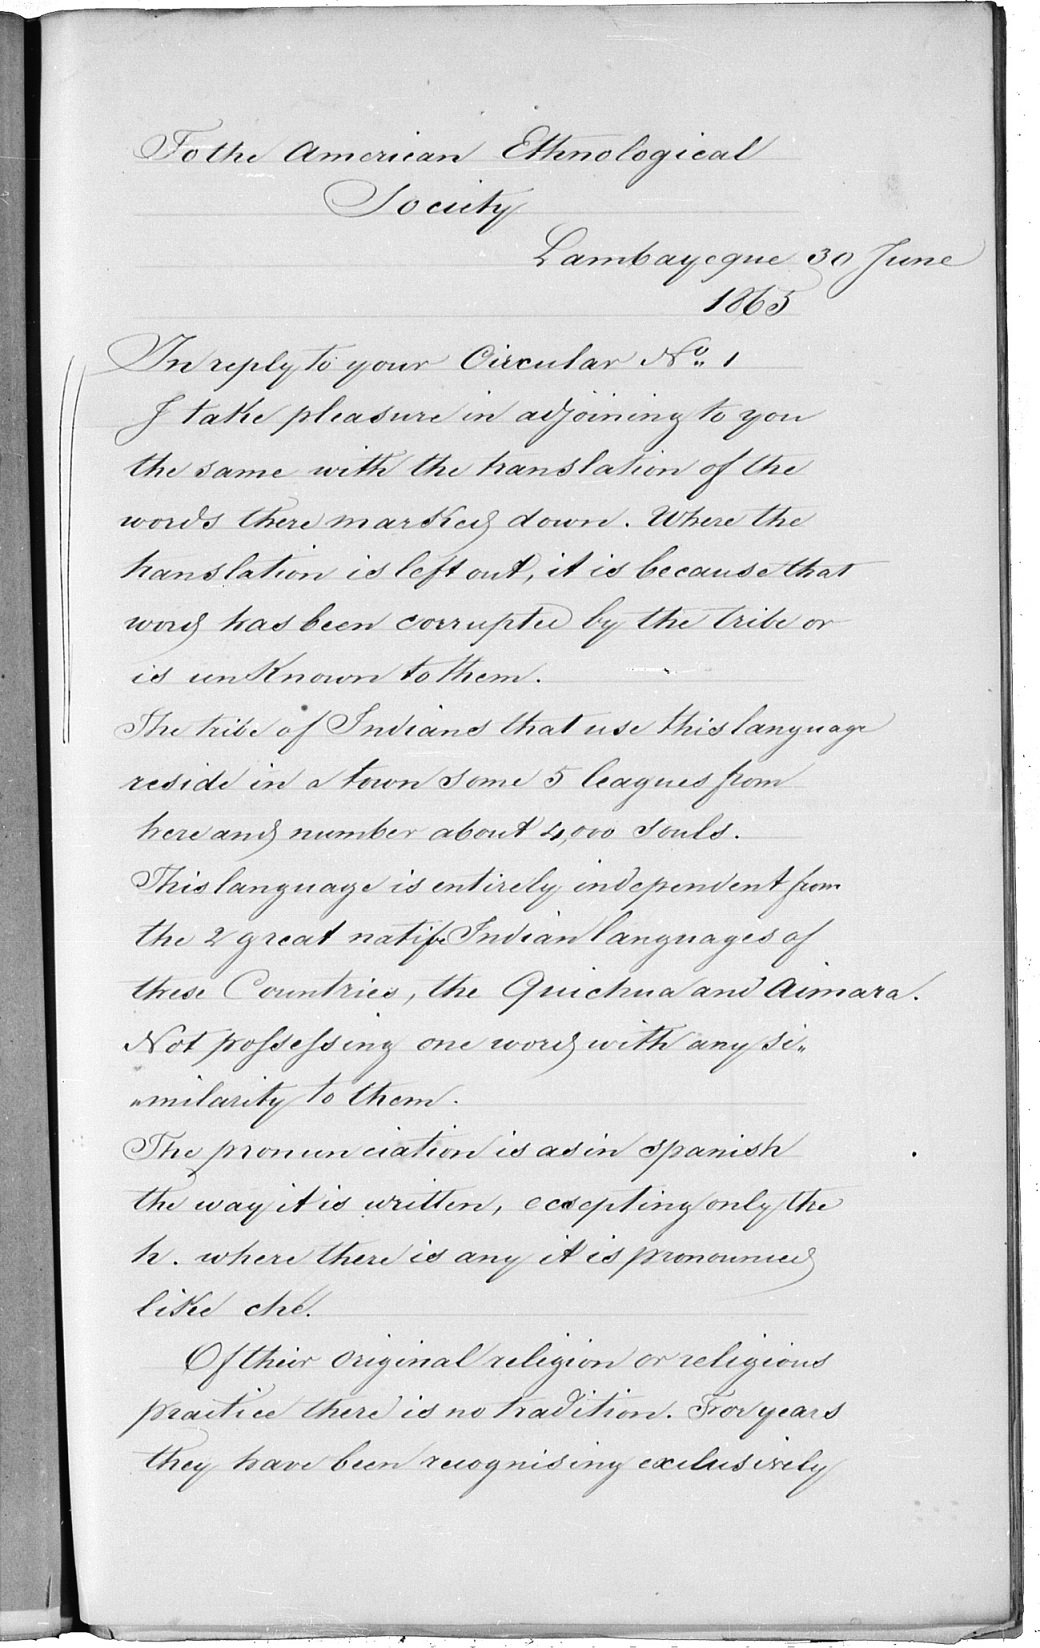 To the American Ethnological
Society
Lambayeque 30 June
1865
In reply to your Circular No. 1
I take pleasure in adjoining to you
the same with the translation of the
words there marked down. Where the
translation is left out, it is because that
word has been corrupted by the tribe or
is unknown to them.
The tribe of Indians that use this language
reside in a town some 5 leagues from
here and number about 4,000 souls.
This language is entirely independent from
the 2 great native Indian languages of
these Countries, the Quichua and Aimara.
Not possessing one word with any si"
"milarity to them.
The pronunciation is as in spanish
the way it is written, eccepting only the
h. where there is any it is pronounced
like che.
Of their original religion or religious
practice there is no tradition. For years
they have been recognising exclusively